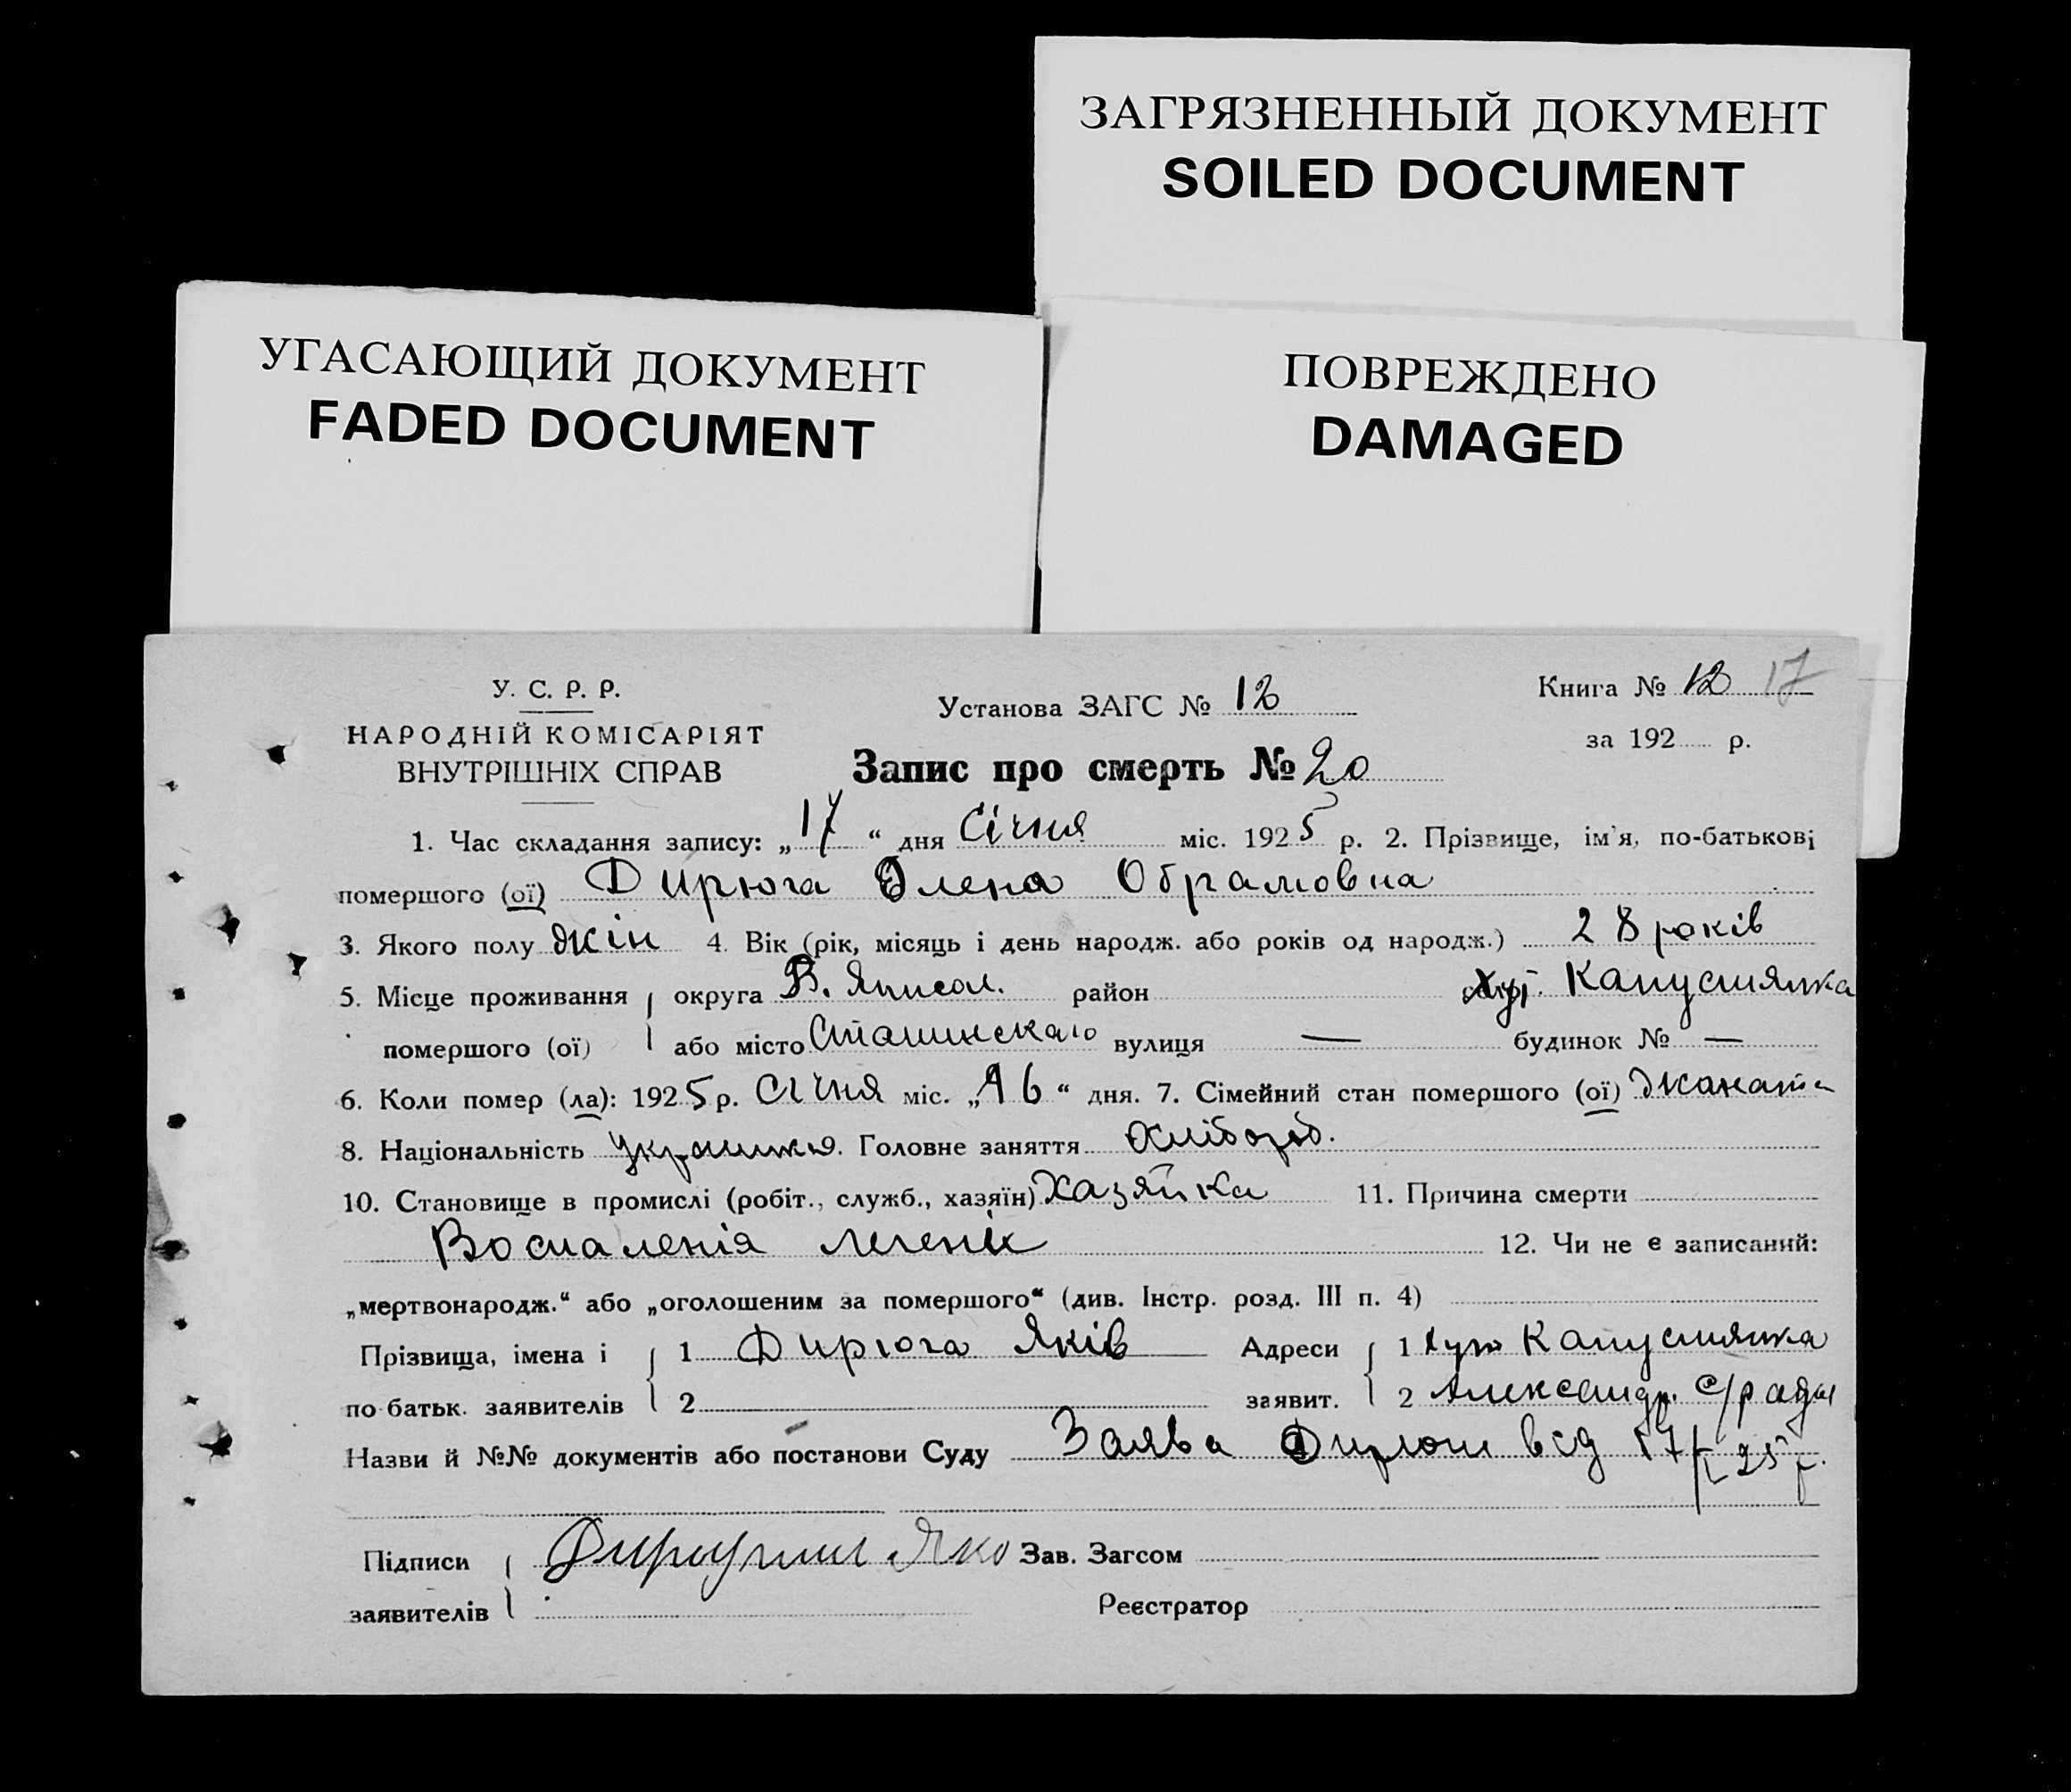 ЗАГРЯЗНЕННЫЙ ДОКУМЕНТ
SOILED DOCUMENT
УГАСАЮЩИЙ ДОКУМЕНТ
FADED DOCUMENT
ПОВРЕЖДЕНО
DAMAGED
У. С. Р. Р.
НАРОДНІЙ КОМІСАРІЯТ
ВНУТРІШНІХ СПРАВ
Установа ЗАГС № 12
Запис про смерть № 20
Книга № 12 17
за 192 р.
1. Час складання запису: „17“ дня Січня міс. 1925 р. 2. Прізвище, ім'я, по-батькові
помершого (ої) Дирюга Олена Обрамовна
3. Якого полу жін 4. Вік (рік, місяць і день народж. або років од народж.) 28 років
5. Місце проживання округа район хут. Капустянка
помершого (ої) або місто вулиця — будинок № —
6. Коли помер (ла): 1925 р. Січня міс. „16“ дня. 7. Сімейний стан помершого (ої)
8. Національність 9. Головне заняття Хлібороб.
10. Становище в промислі (робіт., служб., хазяїн) Хазяйка 11. Причина смерти
Воспаленія легенів 12. Чи не є записаний:
„мертвонародж.“ або „оголошеним за помершого“ (див. Інстр. розд. III п. 4)
Прізвища, імена і 1 Дирюга Яків Адреси 1 хут Капустянка
по батьк. заявителів 2 заявит. 2 Александр. с/ради
Назви й №№ документів або постанови Суду Заява від 17/I 25 р.
Підписи Зав. Загсом
заявителів Реєстратор